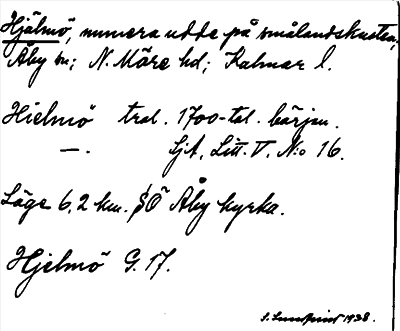 Hjälmö, numera udde på smålandskusten,
Åby sn; N. Möre hd; Kalmar l.
Hielmö trol. 1700-tal. börjen.
—. Sjt, Litt. V. N:o 16.
Läge 6,2 km. SÖ Åby kyrka.
Hjelmö G. 17.
1938.